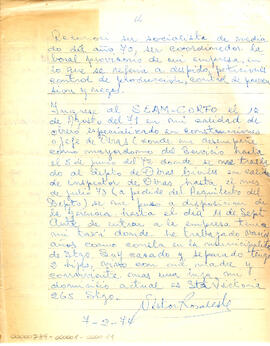 Reconoci ser socialista de media
do del año 70, ser coordinador la
boral provisorio de mi empresa, en
lo que se refería a depido, peticiones
control de producción, control de per
sion y riego.
Ingrese al SEAM-CORFO el 12
de Agosto del 71 en mi calidad de
obrero especializado en construcciones
o Jefe de Obras ( donde me desempeñe
como mayordomo de Servicio hasta
el 5 de junio del 72 donde se me trasla
do al Depto de Obras Civiles en calida
de inspector de Obras, hasta el mes
de julio 73 (a pedido del Comite del
Depto) se me puso a disposición de
la Gerencia hasta el día 11 de Sept
Antes de entrar a la empresa tenia
mi taxi donde he trabajado varios
años como consta en la municipalidad
de Stgo. Soy casado y separado tengo
2 hijos, vivo con mi cuñada y
conviviente mas una hija mi
domicilio actual es 3ta Victoria
265 Stgo.
Néstor Rosales
7-2-74
00000779-000001-000011